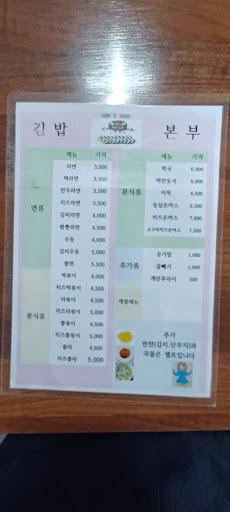 SINCE 2008
김밥
본부
메뉴 가격
라면 3,000
떡라면 3,500
만두라면 3,500
치즈라면 3,500
김치라면 4,000
짬뽕라면 4,500
우동 4,000
김치우동 5,000
쫄면 5,500
면류
떡볶이 4,000
치즈떡볶이 4,500
라볶이 4,500
치즈라볶이 5,000
쫄볶이 4,500
치즈쫄볶이 5,000
쫄라 4,500
치즈쫄라 5,000
분식류
메뉴 가격
떡국 6,000
떡만둣국 6,000
야채
등심돈까스 6,500
치즈돈까스 7,500
고구마치즈돈까스 7,500
분식류
공기밥 1,000
곱빼기 1,000
계란후라이 500
추가류
계절메뉴
추가
반찬(김치,단무지)과
국물은 셀프입니다